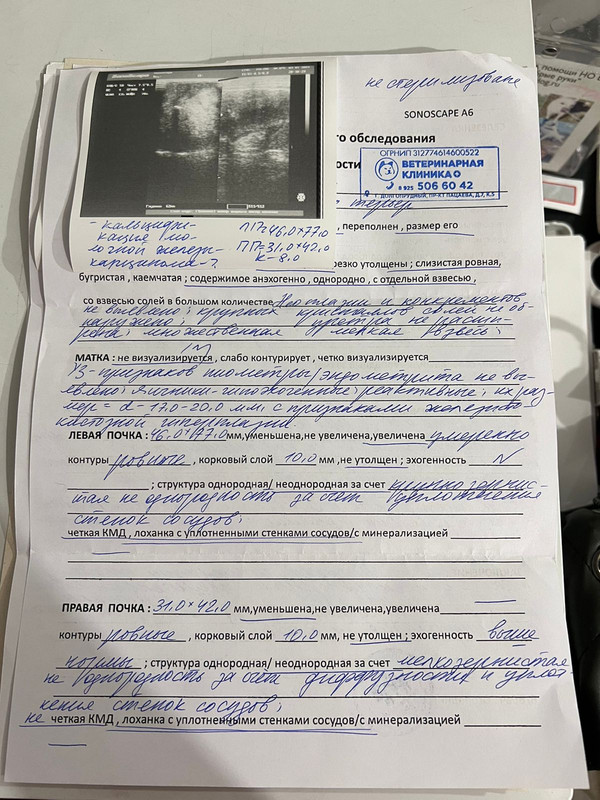 не стерилизована
SONOSCAPE A6
го обследования
ости
ОГРНИП 312774614600522
ВЕТЕРИНАРНАЯ
КЛИНИКА
8 925 506 60 42
Г. ДОЛГОПРУДНЫЙ, ПР-КТ ПАЦАЕВА, Д.7, К.5
терьер
, переполнен , размер его
- кальцифи-
кация мо-
лочной желези-
карцинома-?
ЛП=46,0×77,0
ПП=31,0×42,0
К-8,0
резко утолщены ; слизистая ровная,
бугристая , каемчатая ; содержимое анэхогенно , однородно , с отдельной взвесью ,
со взвесью солей в большом количестве Неоплазии и конкрементов
не выявлено; крупных кристаллов солей не об-
наружено; уретра не расши-
рена; множественная мелкая взвесь;
МАТКА : не визуализируется , слабо контурирует , четко визуализируется
УЗ-признаков пиометры/эндометрита не вы-
явлено; яичники-гипоэхогенные, реактивные; их раз-
мер = d - 17,0-20,0 мм; с признаками железисто-
кистозной гиперплазии
ЛЕВАЯ ПОЧКА : 46,0×77,0 мм,уменьшена,не увеличена,увеличена умеренно
контуры ровные , корковый слой 10,0 мм ,не утолщен ; эхогенность N
; структура однородная/ неоднородная за счет крупнозернис-
тая не однородность за счет уплотнения
стенок сосудов;
четкая КМД , лоханка с уплотненными стенками сосудов/с минерализацией
ПРАВАЯ ПОЧКА : 31,0×42,0 мм,уменьшена,не увеличена,увеличена
контуры ровные , корковый слой 10,0 мм, не утолщен ; эхогенность выше
нормы ; структура однородная/ неоднородная за счет мелкозернистая
не однородность за счет диффузности и уплот
нения стенок сосудов;
не четкая КМД , лоханка с уплотненными стенками сосудов/с минерализацией